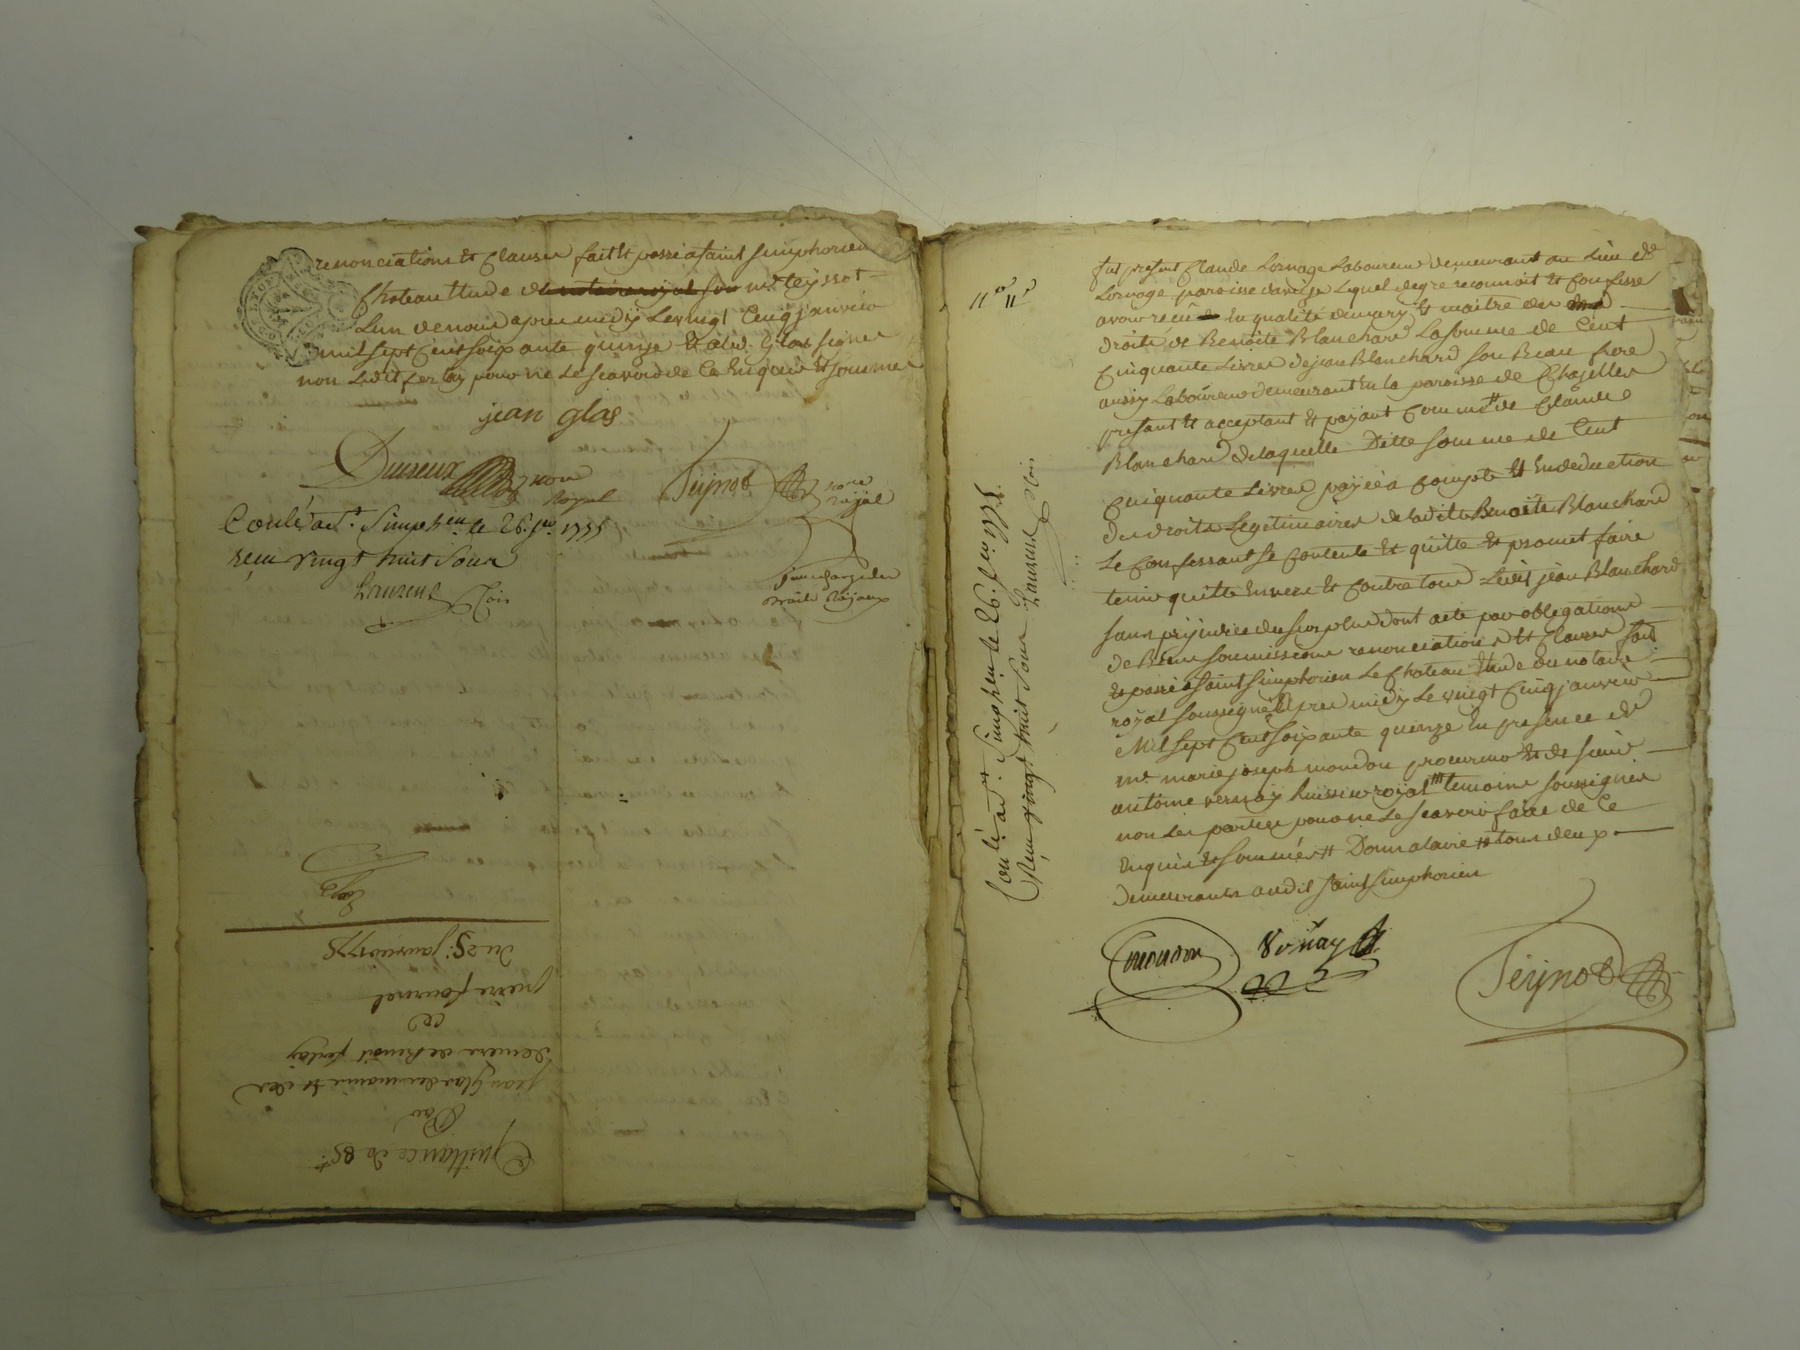 renonciations et clauses fait et passé a saint simphorien
chateau Etude de notaire royal sou me teyssot
Lun de nous apres midy Le vingt cinq janvier
mil sept cent soixante quinze et a led. glas signé
non Ledit ferlay pour ne le scavoir de ce enquis et sommé
jean glas
Dureux nore royal
Teijnot nore royal
Conlé a St. Simphen le 26 Jer 1775
reçu vingt huit sous
Laurent
jean glas des
droits royaux
Quittance de 85tt
Par
jean glas des mariés et des
deniers de benoit ferlay
a
pierre fournel
du 25 janvier 1775
Exp
11er 11r
Conlé a St. Simphen le 26 Jer 1775
Reçu vingt huit sous Laurent
fut present Claude Lornage Laboureur demeurant au Lieu de
Lornage paroisse Lequel de gré reconnoit et confesse
avoir recu en qualité de mary et maitre des
droits de Benoite Blanchard La somme de Cent
Cinquante Livres de jean Blanchard son Beau frere
aussy Laboureur demeurant en la paroisse de Chazelles
present et acceptant et payant comme htt de Claude
Blanchard de laquelle Ditte somme de Cent
Cinquante Livres payée a compte et En deduction
des droits Legitimaires de laditte Benoite Blanchard
Le confessant se contente et quitte et promet faire
tenir quitte Envers et contre tous Ledit jean Blanchard
sans prejudice du surplus dont acte par obligations
de Biens soumissions renonciations et clauses fait
et passé a saint simphorien Le chateau Etude du notaire
royal soussigné apres midy Le vingt Cinq janvier
Mil sept cent soixante quinze En presence de
me marie joseph moudon procureur et de sieur
antoine vernay huissier royal temoins soussignés
non Les parties pour ne Le scavoir faire de Ce
Enquis et sommés tous deux
demeurants audit saint simphorien
moudon
Vernay
Teijnot